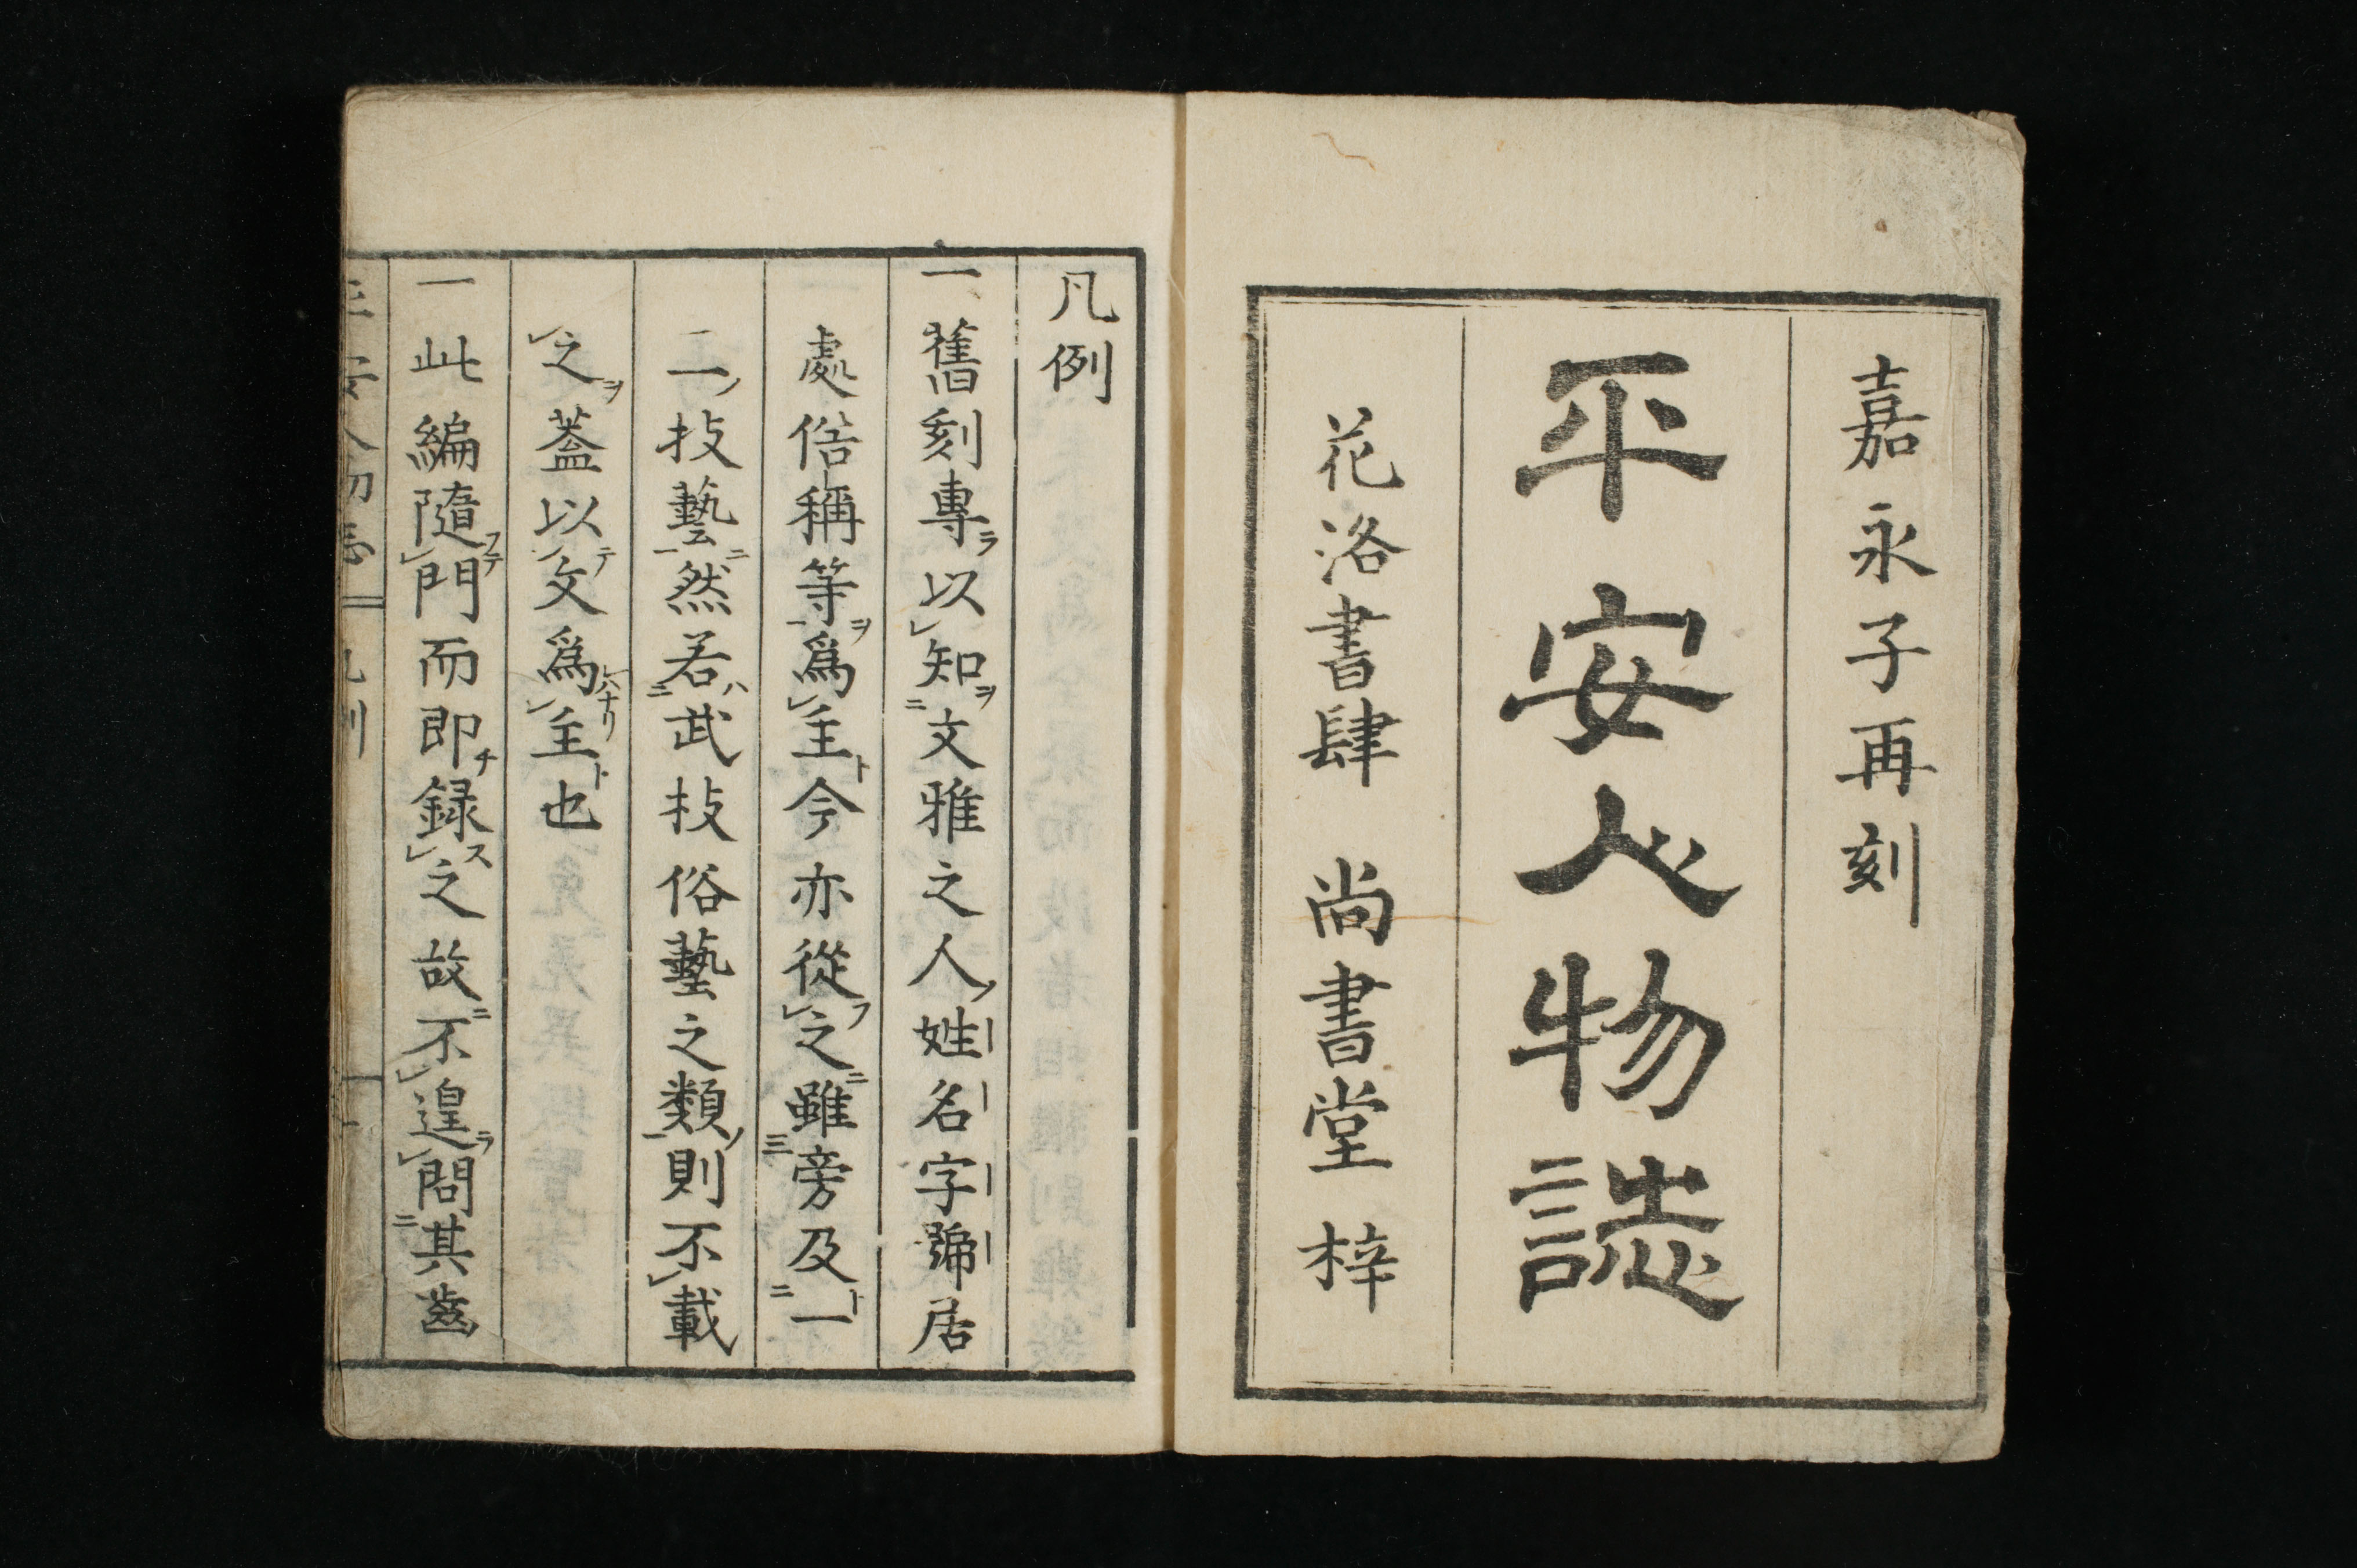 嘉永子再刻
平安人物誌
花洛書肆 尚書堂 梓
凡例
一舊刻專ラ以レ知ヲ二文雅之人ノ姓名字號居
處俗稱等ヲ一爲レ主ト今亦從フレ之ニ雖三旁及ト二一
二ノ技藝ニ一然若ハ二武技俗藝之類ノ一則不レ載
レ之ヲ蓋以テレ文爲ルナリレ主ト也
一此編隨フテレ門而即チ録スレ之故ニ不レ遑ラレ問二其齒
平安人物志 凡例 一